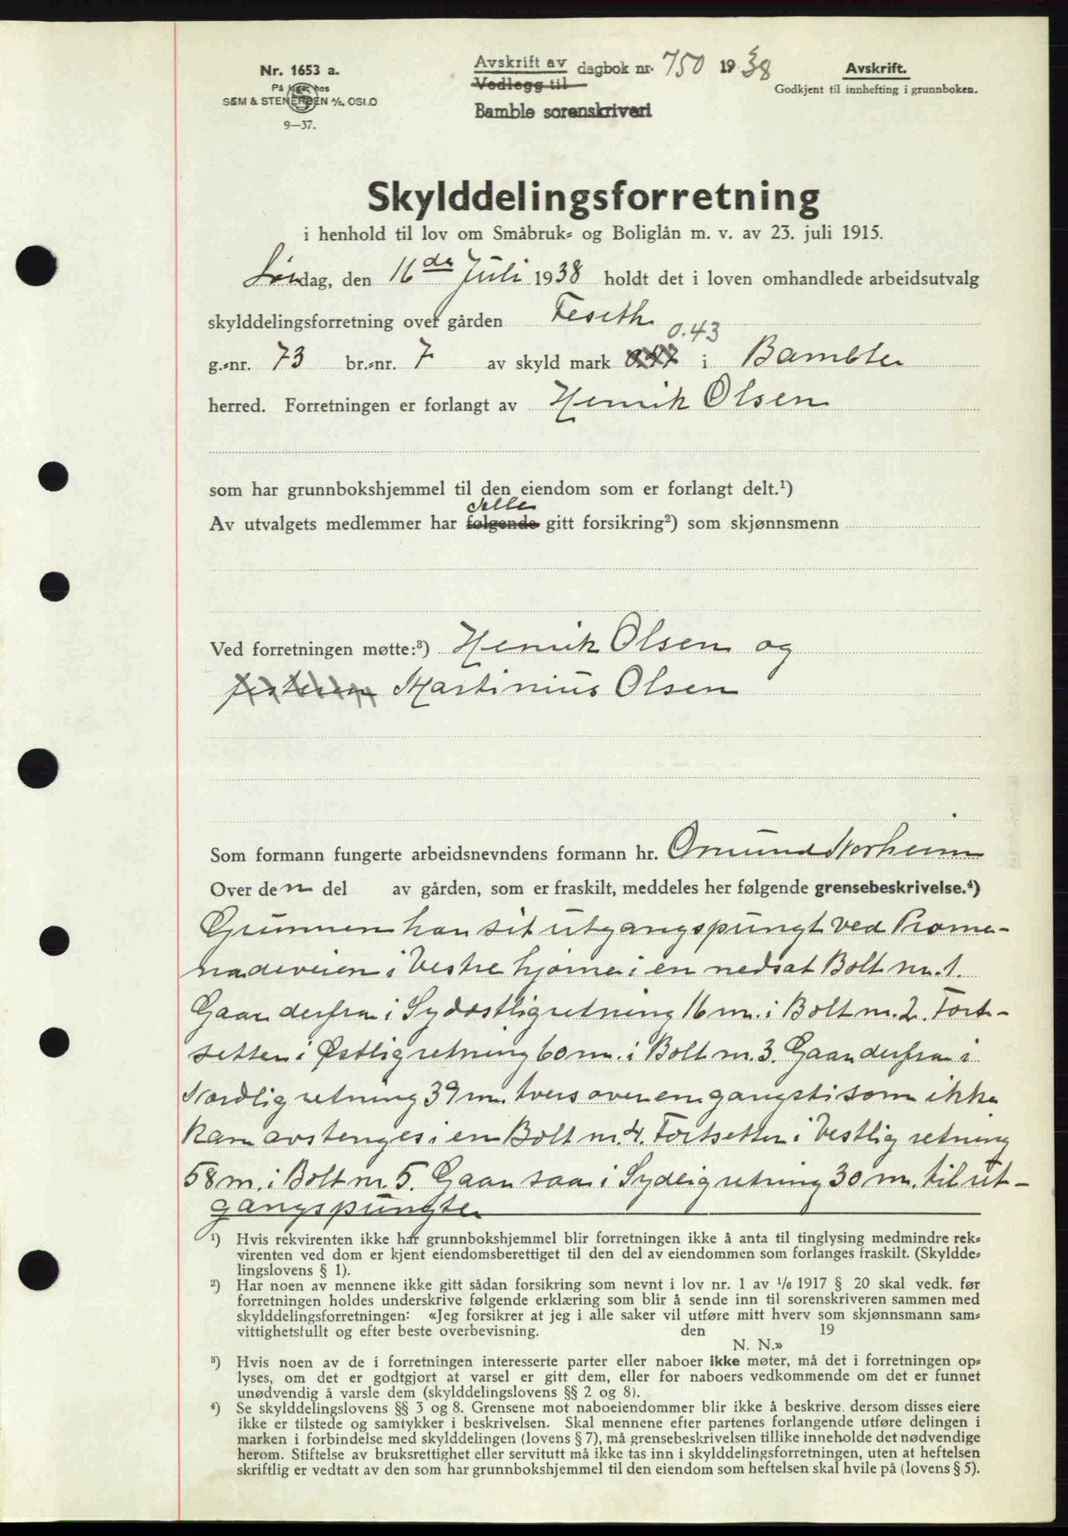 Nr. 1653 a.
På lager hos
SEM & STENERSEN A/S, OSLO
9—37.
Avskrift av
Vedlegg til
dagbok nr. 750 1938
Bamble sorenskriveri
Avskrift.
Godkjent til innhefting i grunnboken.
Skylddelingsforretning
i henhold til lov om Småbruk- og Boliglån m. v. av 23. juli 1915.
Lørdag, den 16de Juli 1938 holdt det i loven omhandlede arbeidsutvalg
skylddelingsforretning over gården Feseth
0.43
g.-nr. 73 br.-nr. 7 av skyld mark i Bamble
herred. Forretningen er forlangt av Henrik Olsen
som har grunnbokshjemmel til den eiendom som er forlangt delt.¹)
alle
Av utvalgets medlemmer har følgende gitt forsikring²) som skjønnsmenn
Ved forretningen møtte:³) Henrik Olsen og
Martinius Olsen
Som formann fungerte arbeidsnevndens formann hr. Omund Norheim
Over den del av gården, som er fraskilt, meddeles her følgende grensebeskrivelse.⁴)
Grunnen har sit utgangspungt ved Prome-
nadeveien i Vestre hjørne i en nedsat Bolt nr. 1.
Gaar derfra i Sydøstlig retning 16 m. i Bolt nr. 2. Fort-
setter i Østlig retning 60 m. i Bolt nr. 3. Gaar derfra i
Nordlig retning 39 m. tvers over en gangsti som ikke
kan avstenges i en Bolt nr. 4. Fortsetter i Vestlig retning
58 m. i Bolt nr 5. Gaar saa i Sydlig retning 30 m. til ut-
gangspungter
¹) Hvis rekvirenten ikke har grunnbokshjemmel blir forretningen ikke å anta til tinglysing medmindre rek-
virenten ved dom er kjent eiendomsberettiget til den del av eiendommen som forlanges fraskilt. (Skyldde-
lingslovens § 1).
²) Har noen av mennene ikke gitt sådan forsikring som nevnt i lov nr. 1 av 1/6 1917 § 20 skal vedk. før
forretningen holdes underskrive følgende erklæring som blir å sende inn til sorenskriveren sammen med
skylddelingsforretningen: «Jeg forsikrer at jeg i alle saker vil utføre mitt hverv som skjønnsmann sam-
vittighetsfullt og efter beste overbevisning. den 19
N. N.»
³) Hvis noen av de i forretningen interesserte parter eller naboer ikke møter, må det i forretningen op-
lyses, om det er godtgjort at varsel er gitt dem, eller for naboers vedkommende om det er funnet
unødvendig å varsle dem (skylddelingslovens §§ 2 og 8).
⁴) Se skylddelingslovens §§ 3 og 8. Grensene mot naboeiendommer blir ikke å beskrive, dersom disses eiere
ikke er tilstede og samtykker i beskrivelsen. Skal mennene efter partenes forlangende utføre delingen i
marken i forbindelse med skylddelingen (lovens § 7), må grensebeskrivelsen tillike inneholde det nødvendige
herom. Stiftelse av bruksrettighet eller servitutt må ikke tas inn i skylddelingsforretningen, uten at heftelsen
skriftlig er vedtatt av den som har grunnbokshjemmel til den eiendom som heftelsen skal hvile på (lovens § 5).